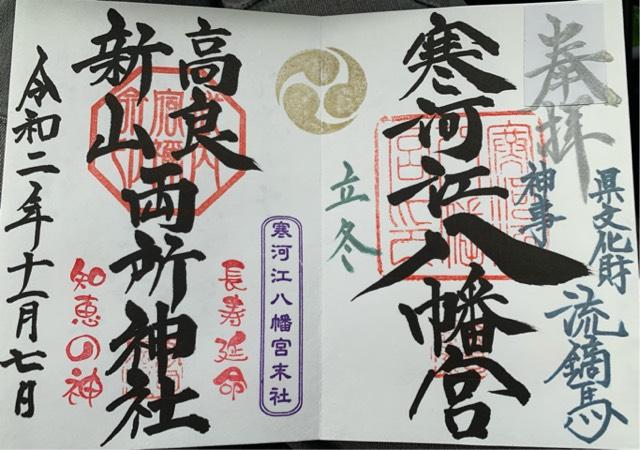 奉拝
県文化財
神事
流鏑馬
寒河江八幡宮
立冬
寒河江八幡宮末社
長寿延命
高良
新山
両所神社
知恵の神
令和二年十一月七日